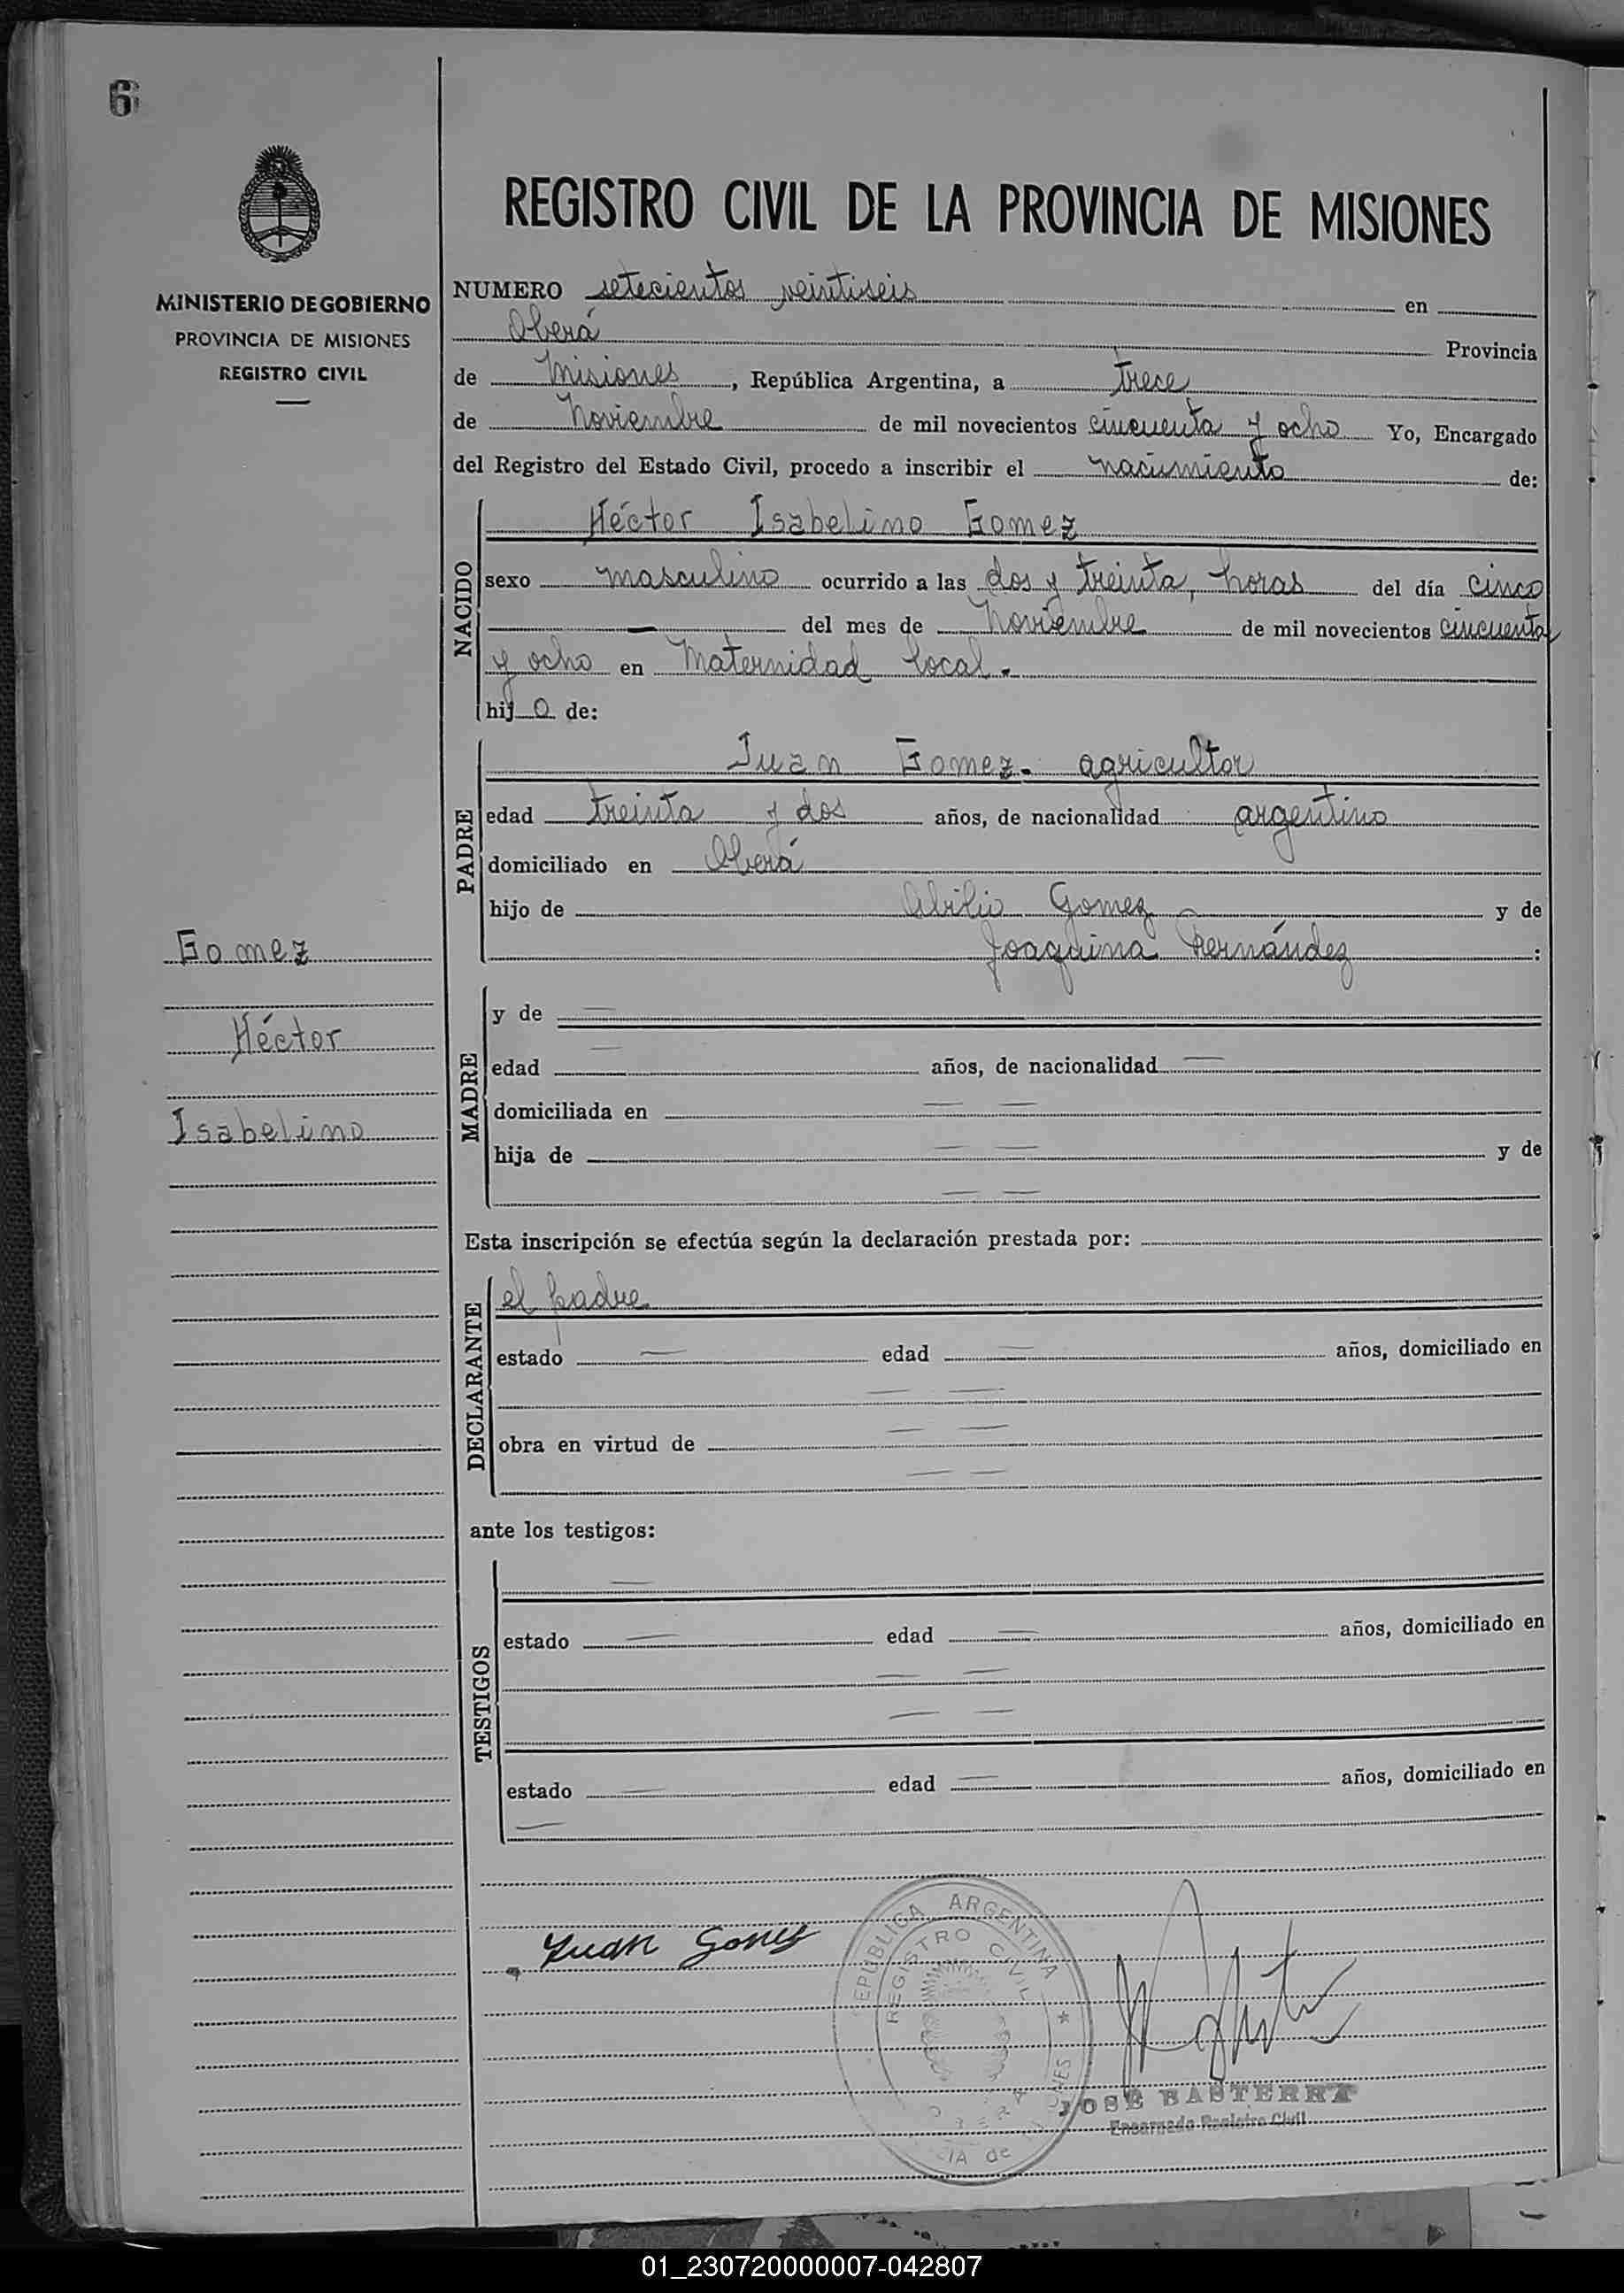 6
REGISTRO CIVIL DE LA PROVINCIA DE MISIONES
MINISTERIO DE GOBIERNO
PROVINCIA DE MISIONES
REGISTRO CIVIL
NUMERO setecientos veintiseis en
Oberá Provincia
de Misiones, República Argentina, a trece
de Noviembre de mil novecientos cincuenta y ocho Yo, Encargado
del Registro del Estado Civil, procedo a inscribir el nacimiento de:
NACIDO
Héctor Isabelino Gomez
sexo masculino ocurrido a las dos y treinta, horas del día cinco
— del mes de Noviembre de mil novecientos cincuenta
y ocho en Maternidad local.-
hijo de:
PADRE
Juan Gomez- agricultor
edad treinta y dos años, de nacionalidad argentino
domiciliado en Oberá
hijo de Abilio Gomez y de
Joaquina Hernández :
Gomez
Héctor
Isabelino
MADRE
y de —
edad — años, de nacionalidad —
domiciliada en — —
hija de — — y de
— —
Esta inscripción se efectúa según la declaración prestada por:
DECLARANTE
el padre
estado — edad — años, domiciliado en
— —
obra en virtud de — —
— —
ante los testigos:
TESTIGOS
—
estado — edad — años, domiciliado en
— —
— —
estado — edad — años, domiciliado en
—
Juan Gomez
REPUBLICA ARGENTINA
REGISTRO CIVIL
OBERA
JOSÉ BASTERRA
Encargado Registro Civil
01_230720000007-042807